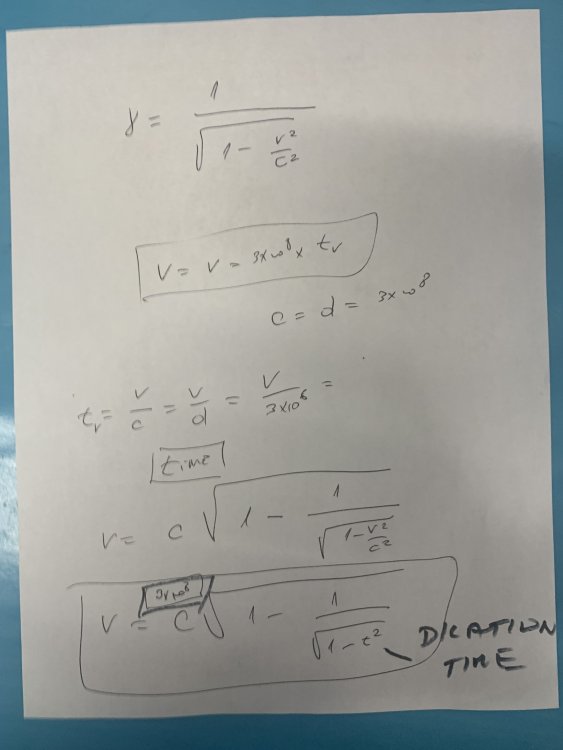 γ = 1 / √(1 - v²/c²)
V = v = 3x10⁸ x tv
c = d = 3x10⁸
tv = v/c = v/d = V/3x10⁸ =
time
v = c √(1 - 1/√(1-v²/c²))
3x10⁸
v = c √(1 - 1/√(1-t²))
DICATION
TIME